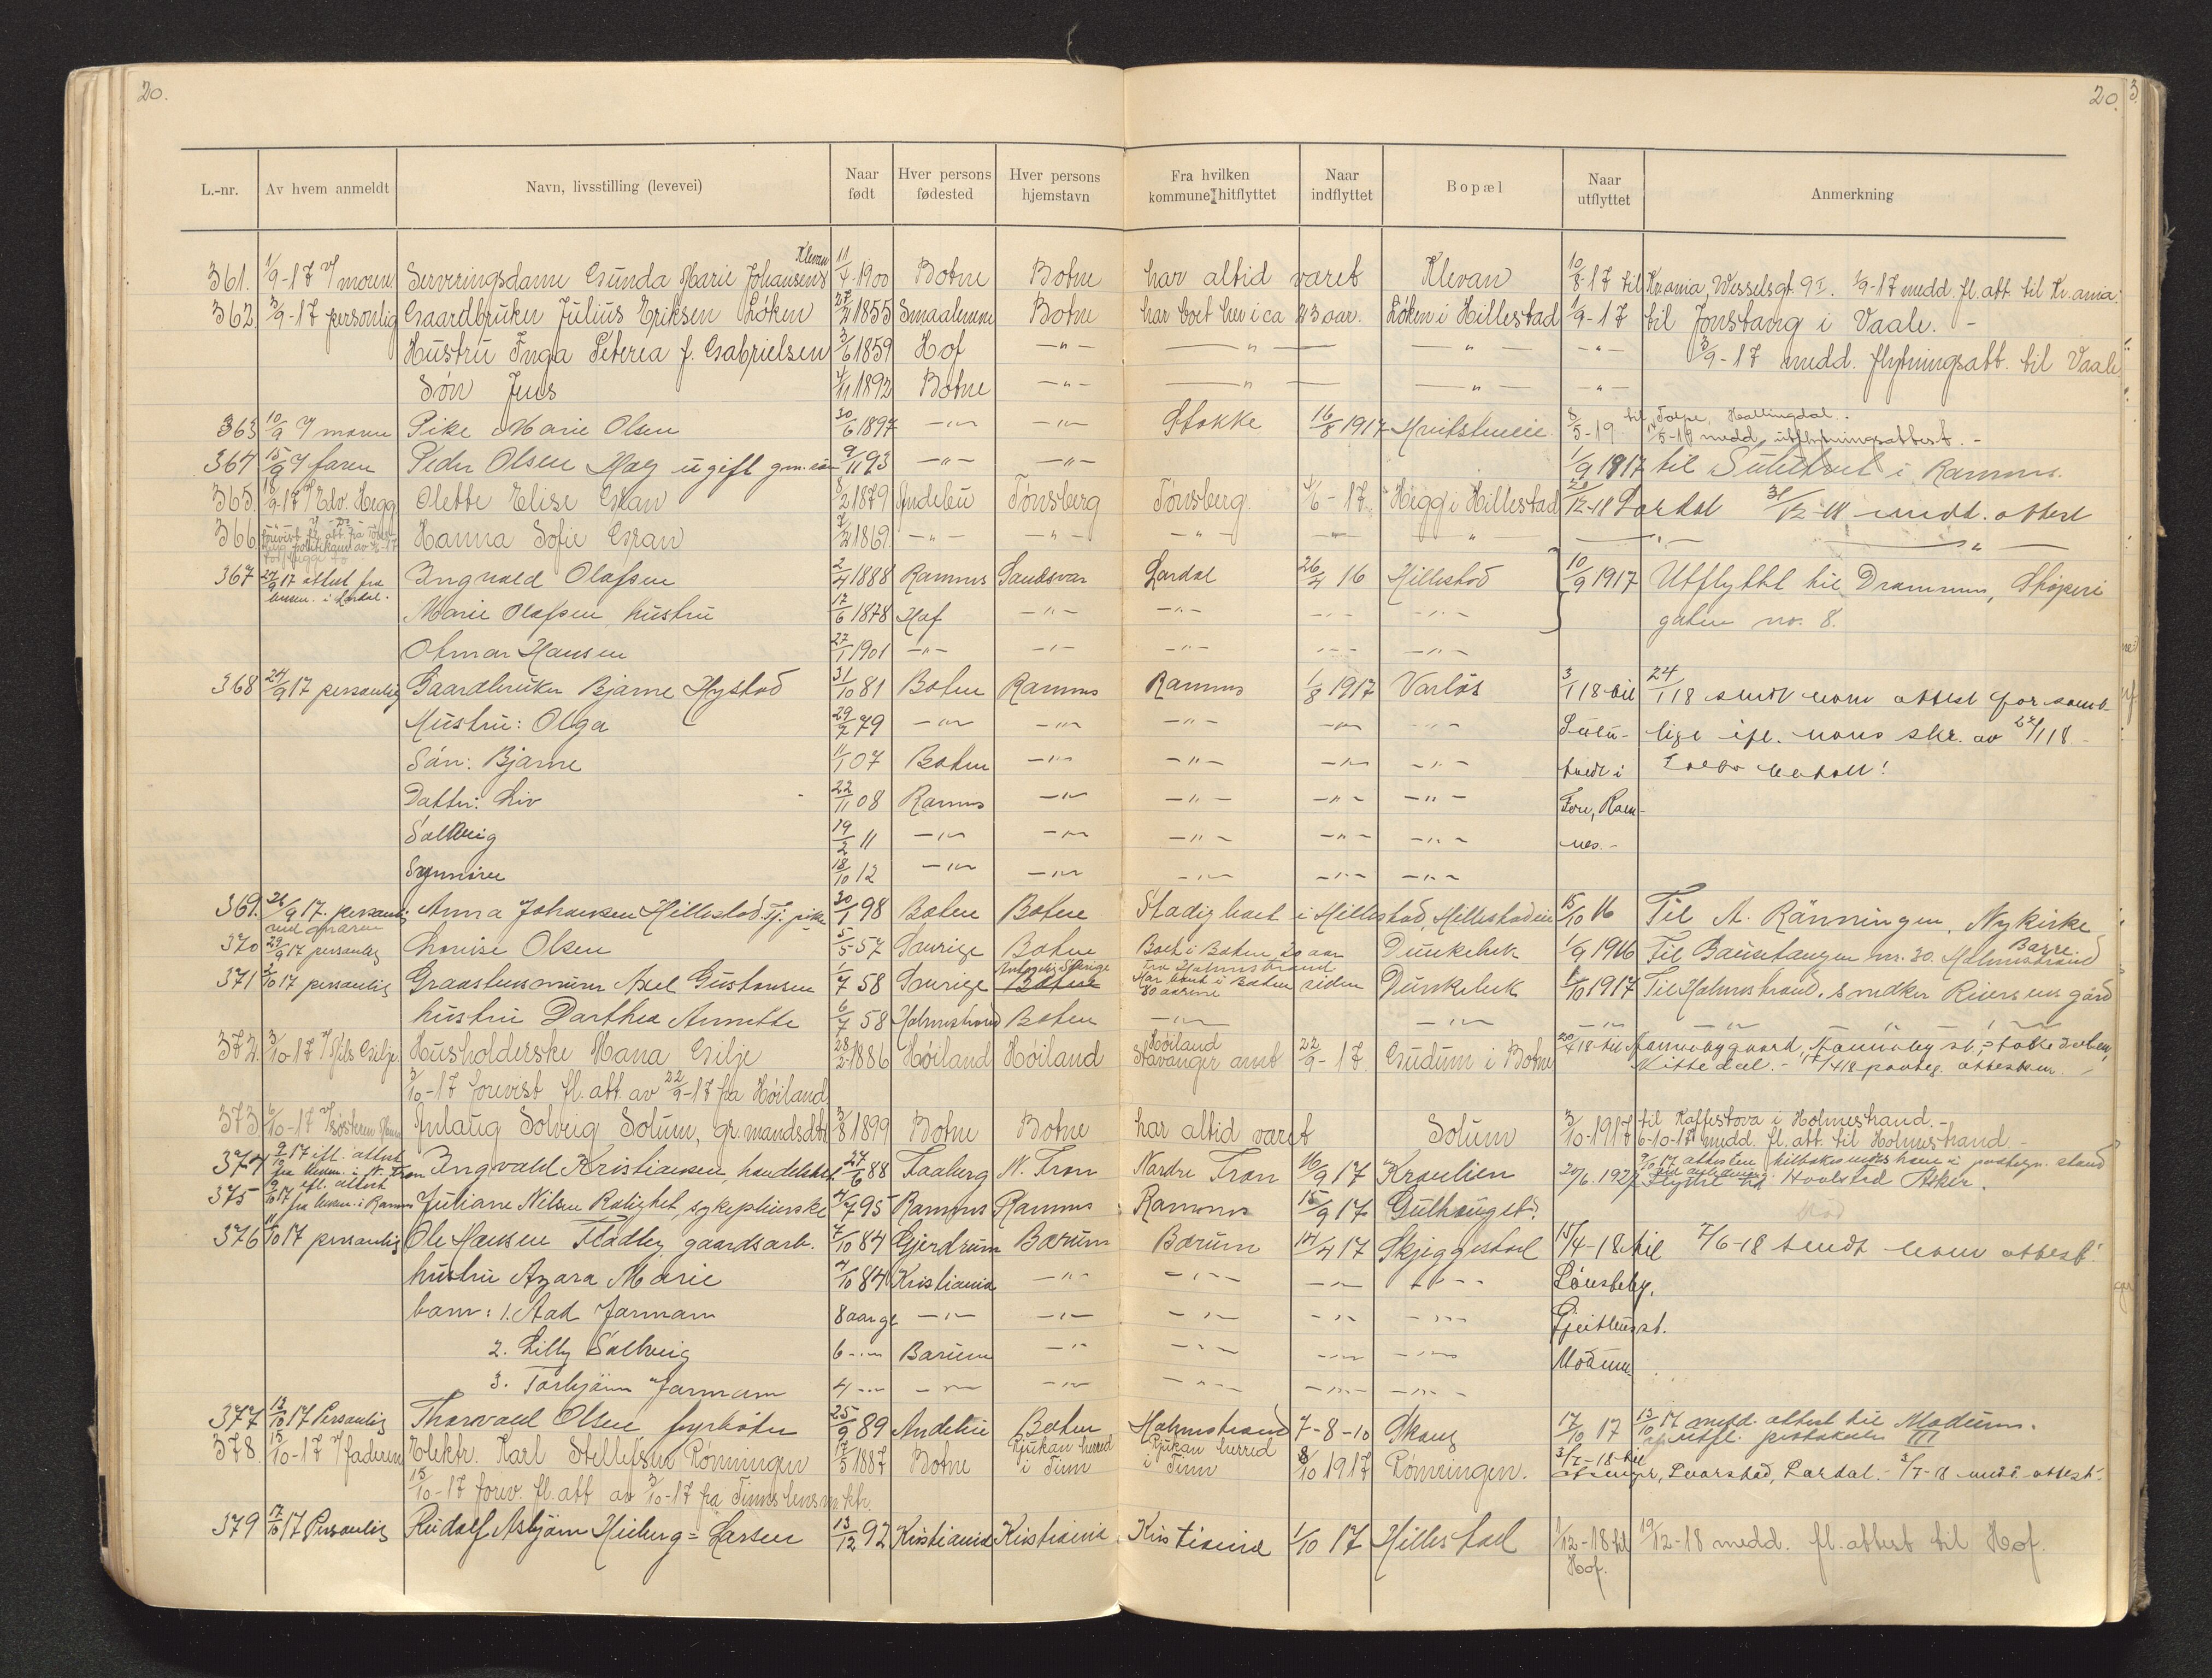 20.
20.
3
L.-nr. Av hvem anmeldt Navn, livsstilling (levevei) Naar født Hver persons fødested Hver persons hjemstavn Fra hvilken kommune hitflyttet Naar indflyttet Bopæl Naar utflyttet Anmerkning
Klevan
361. 1/9-17 v/ moren Serveringsdame Gunda Marie Johansens 11/4-1900 Botne Botne har altid været Klevan 10/8-17 til Kr.ania, Wesselsgt. 9 I. 1/9-17 medd. fl. att. til Kr.ania.
362. 3/9-17 personlig Gaardbruker Julius Eriksen Løken 27/2 1855 Smaalenene Botne har boet her i ca 43 aar. Løken i Hillestad 1/9-17 til Jonstang i Vaale. -
Hustru Inga Peterea f. Gabrielsen 3/6 1859 Hof -"- -"- -"- -"- 3/9-17 medd. flytningsatt. til Vaale
Søn Jens 4/11 1892 Botne -"- -"- -"- -"-
363 10/9 v/ moren Pike Marie Olsen 30/6 1897 -"- -"- Stokke 16/8 1917 Hvitstueie 8/5-19 til Torpe, Hallingdal.
medd. utflytningsattest. -
364 15/9 v/ faren Peder Olsen Haag ugift 9/11 93 -"- -"- 1/9 1917 til Sulutvet i Ramnes.
365. 18/9-17 v/ Edv. Hegg Olette Elise Gran 8/2 1879 Andebu Tønsberg Tønsberg 1/6-17. Hegg i Hillestad 20/12-18 Lardal 31/12-18 medd. attest
366. Hanna Sofie Gran 7/2 1869 -"- -"- -"- -"- -"- -"- -"-
367 27/9 17 attest fra lensm. i Lardal. Ingvald Olafsen 2/4 1888 Ramnes Sandsvær Lardal 26/4 16 Hillestad 10/9 1917 Utflyttet til Drammen, Skiperi
Marie Olafsen, hustru 17/6 1878 Hof -"- -"- -"- -"- gaten no. 8.
Otmar Hansen 27/1 1901 -"- -"- -"- -"- -"-
368 24/9 17 personlig Gaardbruker Bjarne Hystad 31/10 81 Botne Ramnes Ramnes 1/8 1917 Varlös 3/1 18 til 24/1 18 sendt ham attest for samt-
Hustru: Olga 29/7 79 -"- -"- -"- -"- -"- Sulu- lige ifl. hans skr. av 22/1 18
Søn: Bjarne 11/1 07 Botne -"- -"- -"- -"- tvedt i
Datter: Liv 22/11 08 Ramnes -"- -"- -"- -"- Fon, Ram-
Solveig 19/2 11 -"- -"- -"- -"- -"- nes. -
Synnøve 18/10 12 -"- -"- -"- -"- -"-
369. 26/9 17. personlig Anna Johansen Hillestad. Tj. pike 30/1 98 Botne Botne Stadig boet i Hillestad, Hillestadeie 15/10 16 Til A. Ränningen, Nykirke
Borre.
370 29/9 17 personlig Louise Olsen 5/5 57 Sverige Botne Boet i Botne 20 aar Dunkebek 1/9 1916 Til Bauntangen nr. 30. Holmestrand
371 2/10 17 personlig Graastensminer Axel Gustavsen 1/7 58 Sverige Botne Har boet i Botne siden 80 aarene Dunkebek 1/10 1917 Til Holmestrand. Smedker Riiersens gård
hustru Darthea Annette 6/7 58 Holmestrand Botne -"- -"- -"- -"-
372. 3/10-17 v/ Nils Gilje Husholderske Hana Gilje 28/2-1886 Høiland Høiland Høiland Stavanger amt 22/9-17. Gudum i Botne 20/4 18 til
3/10-17 forevist fl. att. av 22/9-17 fra Høiland
373 6/10-17 v/ søsteren Julaug Solveig Solum, gr.mandsdtr 3/8 1899 Botne Botne har altid været Solum 3/10-1917 til Kaffestova i Holmestrand. -
6-10-17 medd. fl. att. til Holmestrand -
374 9/10 17 ifl. attest fra lensm. i N. Fron Ingvald Kristiansen, handelsbet. 27/6 88 Faaberg N. Fron Nordre Fron 16/9 17 Kraulien 20/6. 1927 Flyttet til Hvalstad Asker.
375 9/10 17 ifl. attest fra lensm. i Ramnes Juliane Nilsen Rolighet, sykepleierske 4/7 95 Ramnes Ramnes Ramnes 15/9 17 Gulhaugst.
376 11/10 17 personlig Ole Hansen Fladby gaardsarb. 7/10 84 Gjerdrum Bærum Bærum 14/4 17 Skjeggestad 15/4-18 til 7/6-18 sendt ham attest.
hustru Azara Marie 4/10 84 Kristiania -"- -"- -"- -"- Lønsteby,
barn: 1. Aad Jarmann 8 aar gl -"- -"- -"- -"- -"- Gjeithusst.
2. Lilly Solveig 6 -"- Bærum -"- -"- -"- -"- Modum
3. Torbjørn Jarmann 4 -"- -"- -"- -"- -"- -"-
377 13/10 17 Personlig Thorvald Olsen fyrbøter 25/9 89 Andebu Botne Holmestrand 7-8-10 Skaug 17/10 17 13/10 17 medd. attest til Modum.
utfl. protokollen III
378. 15/10-17 v/ faderen Elektr. Karl Stellefsen Rønningen 17/5 1887 Botne Rjukan herred i Tinn Rjukan herred i Tinn 8/10 1917 Rønningen. 3/7-18 til Svarstad, Lardal. - 3/7-18 medd. attest.
15/10-17 forev. fl. att av 3/10-17 fra Tinns lensm.ktr.
379 17/10 17 Personlig Rudolf Asbjørn Heiberg-Larsen 13/12 92 Kristiania Kristiania Kristiania 1/10 17 Hillestad 1/12-18 til Hof. 19/12-18 medd. fl. attest til Hof.